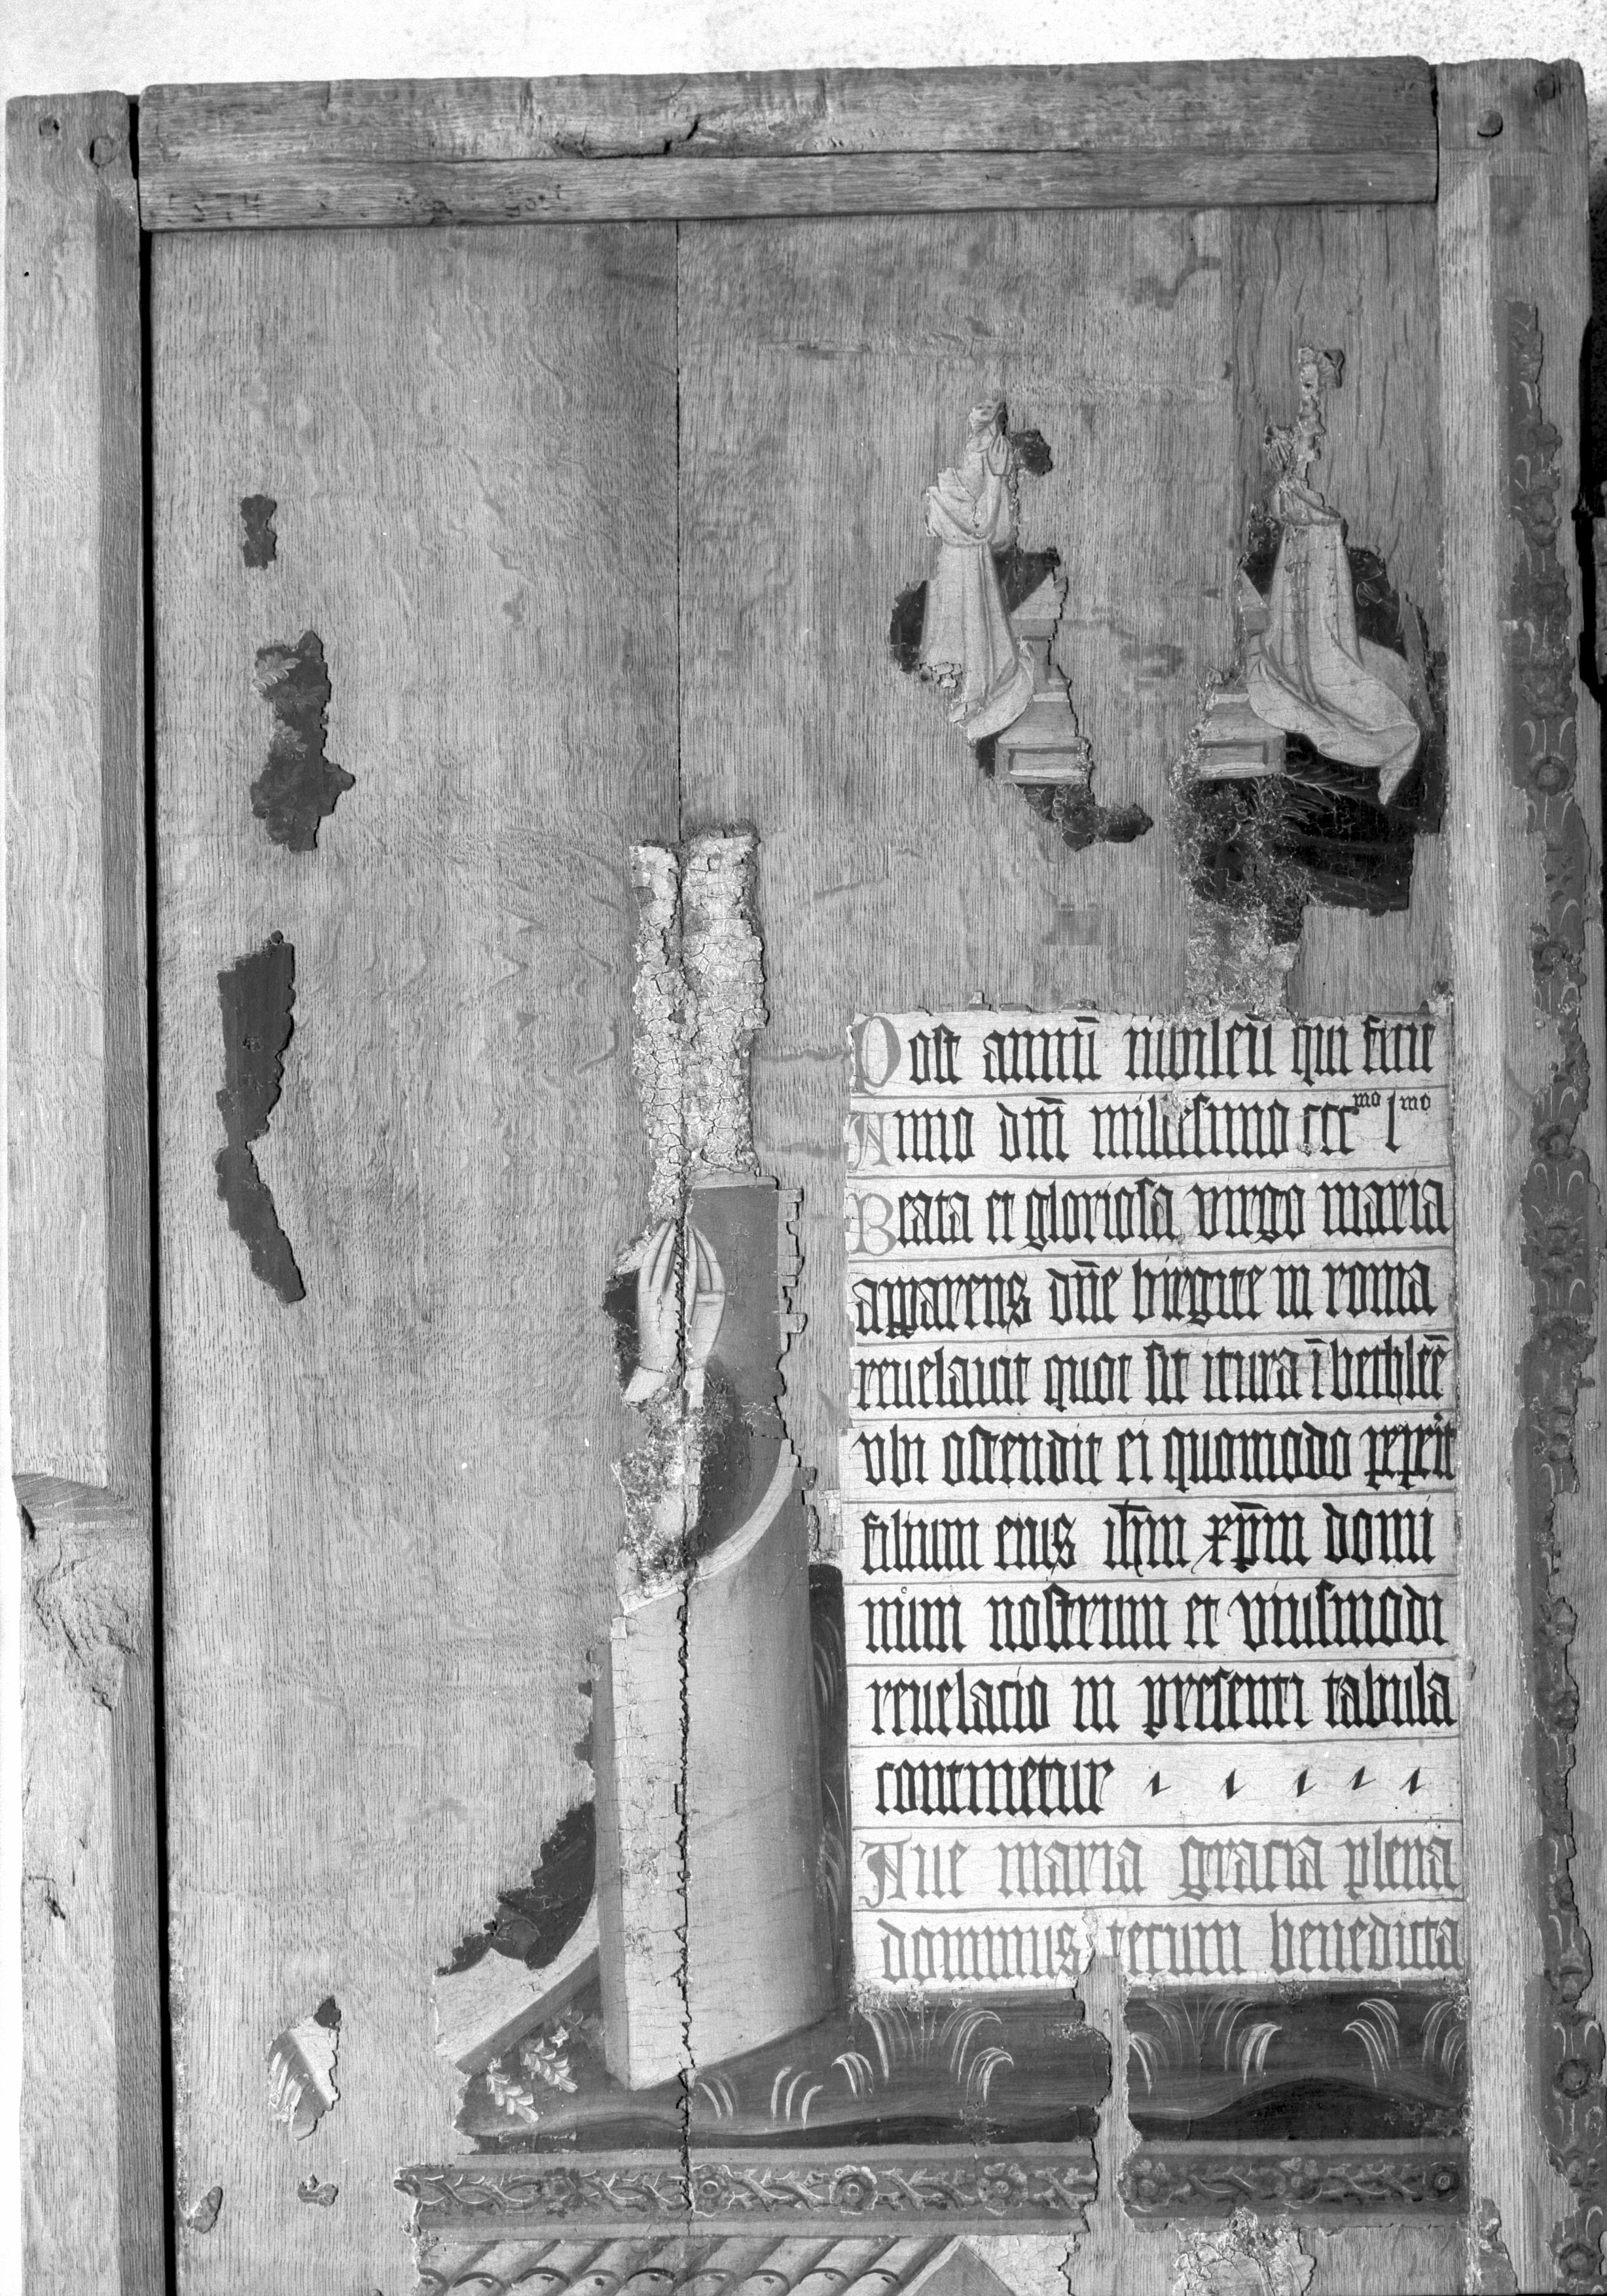 Post annū iubileū qui fuit
Anno dm̄ millesimo cccᵐᵒ lᵐᵒ
Beata et gloriosa virgo maria
apparens dn̄e birgite in roma
reuelauit quot sit itura ī bethleē
vbi ostendit ei quomodo peperit
filium eius ih̄m xp̄m domi
num nostrum et vniusmodi
reuelacio in presenti tabula
continetur
Aue maria gracia plena
dominus tecum benedicta